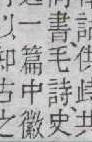 詁供歧共
書毛詩史
一篇中徽
以知古之